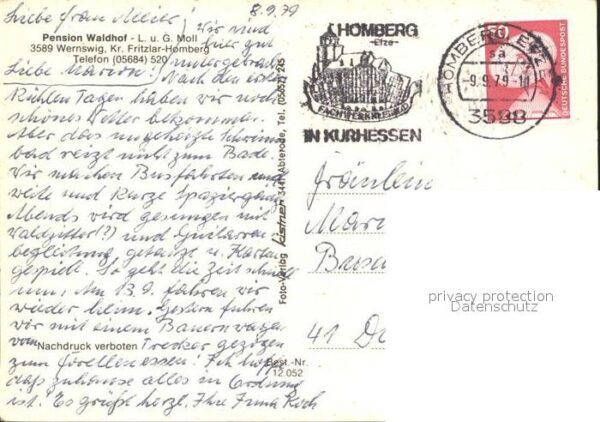 Liebe Frau Meier!
8.9.79
Pension Waldhof - L. u. G. Moll
3589 Wernswig, Kr. Fritzlar-Homberg
Telefon (05684) 520
Wir sind
hier gut
untergebracht
Liebe Marion! Nach den ersten
kühlen Tagen haben wir noch
schönes Wetter bekommen.
Aber das ungeheizte Schwimm
bad reizt nicht zum Bade.
Wir machen Busfahrten und
weite und kurze Spaziergänge
Abends wird gesungen mit
Waldzitter(?) und Guitarren
begleitung, getanzt u. Karten
gespielt. So geht die Zeit schnell
um. Am 13.9. fahren wir
wieder heim. Gestern fuhren
wir mit einem Bauernwagen
vom Trecker gezogen
Nachdruck verboten
zum Forellenessen! Ich hoffe
daß zuhause alles in Ordnung
ist. Es grüßt herzl. Ihre Koch
Foto-Verlag kistner 3441 Abterode, Tel. (05657) 245
Best.-Nr.
12.052
HOMBERG
-Efze-
FACHWERKKLEINOD
IN KURHESSEN
HOMBERG, EFZE
sa
-9.9.79-11
3588
70
DEUTSCHE BUNDESPOST
Fräulein
Mari
Brosa
41 Du
privacy protection
Datenschutz